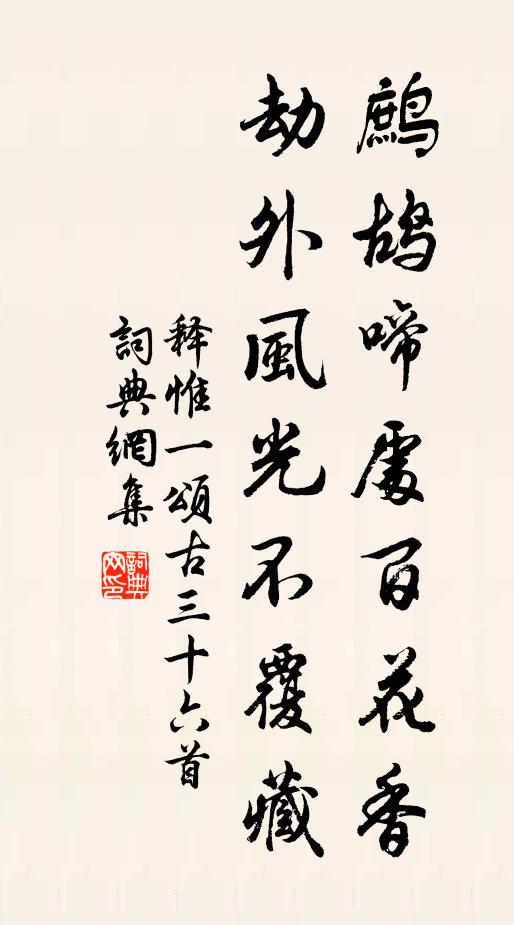 鷓鴣啼處百花香
劫外風光不覆藏
释惟一頌古三十六首
詞典網集
詞典网印